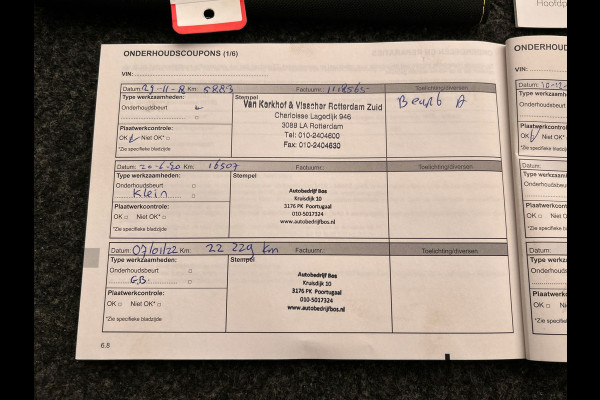 Hoofdp
ONDERHOUDSCOUPONS (1/6)
VIN:
Datum: 29-11-18 Km: 5883 Factuurnr.: Toelichting/diversen
Type werkzaamheden:
Onderhoudsbeurt
Plaatwerkcontrole:
OK Niet OK*
*Zie specifieke bladzijde
Stempel
Van Kerkhof & Visscher Rotterdam Zuid
Charloisse Lagedijk 946
3089 LA Rotterdam
Tel: 010-2404600
Fax: 010-2404630
Beurt A
Datum: 20-6-20 Km: 16507 Factuurnr.: Toelichting/diversen
Type werkzaamheden:
Onderhoudsbeurt
Klein
Plaatwerkcontrole:
OK Niet OK*
*Zie specifieke bladzijde
Stempel
Autobedrijf Bos
Kruisdijk 10
3176 PK Poortugaal
010-5017324
www.autobedrijfbos.nl
Datum: 07/01/22 Km: 22 229 km Factuurnr.: Toelichting/diversen
Type werkzaamheden:
Onderhoudsbeurt
G.B.
Plaatwerkcontrole:
OK Niet OK*
*Zie specifieke bladzijde
Stempel
Autobedrijf Bos
Kruisdijk 10
3176 PK Poortugaal
010-5017324
www.autobedrijfbos.nl
6.8
ONDERHOUD
VIN:
Datum: 10-12-
Type werkzaamheden:
Onderhoudsbeurt
Plaatwerkcontrole:
OK Niet OK*
*Zie specifieke
Datum:
Type werkzaamh
Onderhoudsbeurt
Plaatwerkcontr
OK Niet OK
*Zie specifieke bla
Datum:
Type werkzaam
Onderhoudsbeu
Plaatwerkcont
OK Niet O
*Zie specifieke